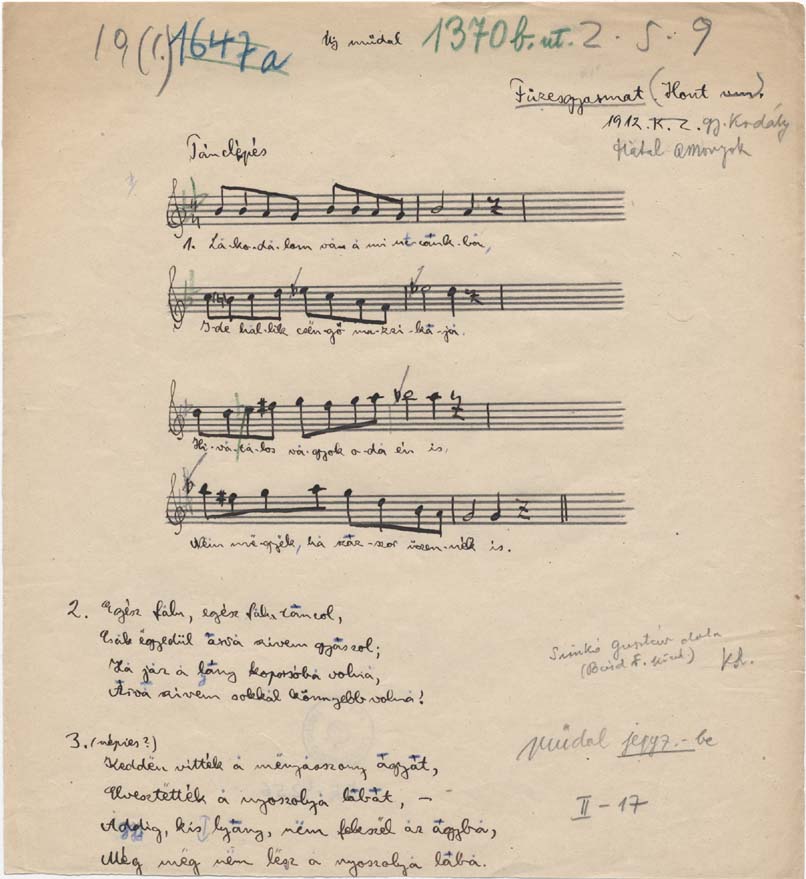 19(1.) 1647a Új műdal 1370b. ut. 2. 5. 9
Füzesgyarmat (Hont vm).
1912. K. Z. gy. Kodály
fiatal asszonyok
Tánclépés
1. Lá-ko-dá-lom van á mi ut-cánk-bá,
I-de hal-lik csen-gő mu-zsi-ká-já.
Hi-vá-tá-los vá-gyok o-dá én is,
Nem më-gyek, há száz-szor üzen-nék is.
2. Egész fálu, egész fálu táncol,
Csák ëgyedül árvá szivem gyászol;
Há jáz á lány koporsóbá volná,
Árvá szivem sokkál könnyebb volná!
3. (népies?)
Keddën vitték á mënyásszony ágyát,
Elvesztëtték á nyoszolyá lábát, —
Áddig, kis lyány, nëm fekszël áz ágybá,
Még mëg nëm lësz á nyoszolyá lábá.
Sinkó Gusztáv dala
Kh.
Műdal jegyz.-be
II-17